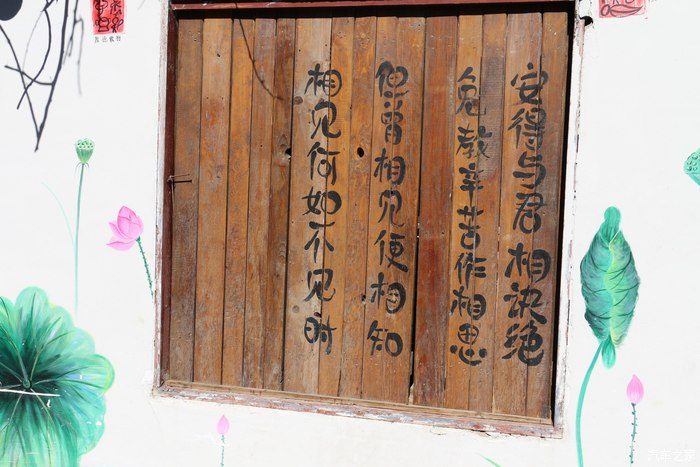 安得与君相诀绝
免教辛苦作相思
但曾相见便相知
相见何如不见时
汽车之家